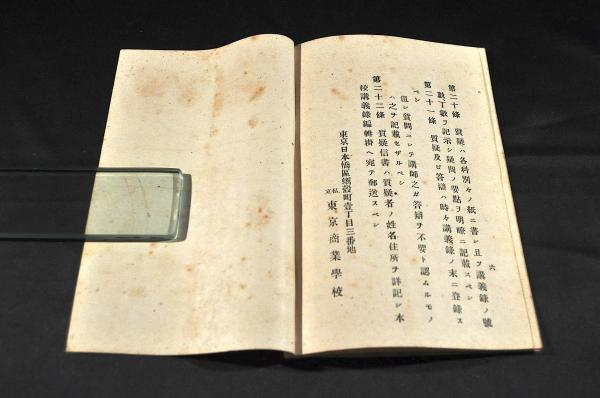 六
第二十條 質疑ハ各科別々ノ紙ニ書シ且ヲ講義錄ノ號
數丁數ヲ記示シ疑問ノ要點ヲ明瞭ニ記載スベシ
第二十一條 質疑及ビ答辯ハ時々講義錄ノ末ニ登錄ス
ベシ
但シ質問ニシテ講師之ガ答辯ヲ不要ト認ムルモノ
ハ之ヲ記載セザルベシ
第二十二條 質疑信書ハ質疑者ノ姓名住所ヲ詳記シ本
校講義錄編輯掛ヘ宛テ郵送スベシ
東京日本橋區蠣殼町壹丁目三番地
私立 東京商業學校